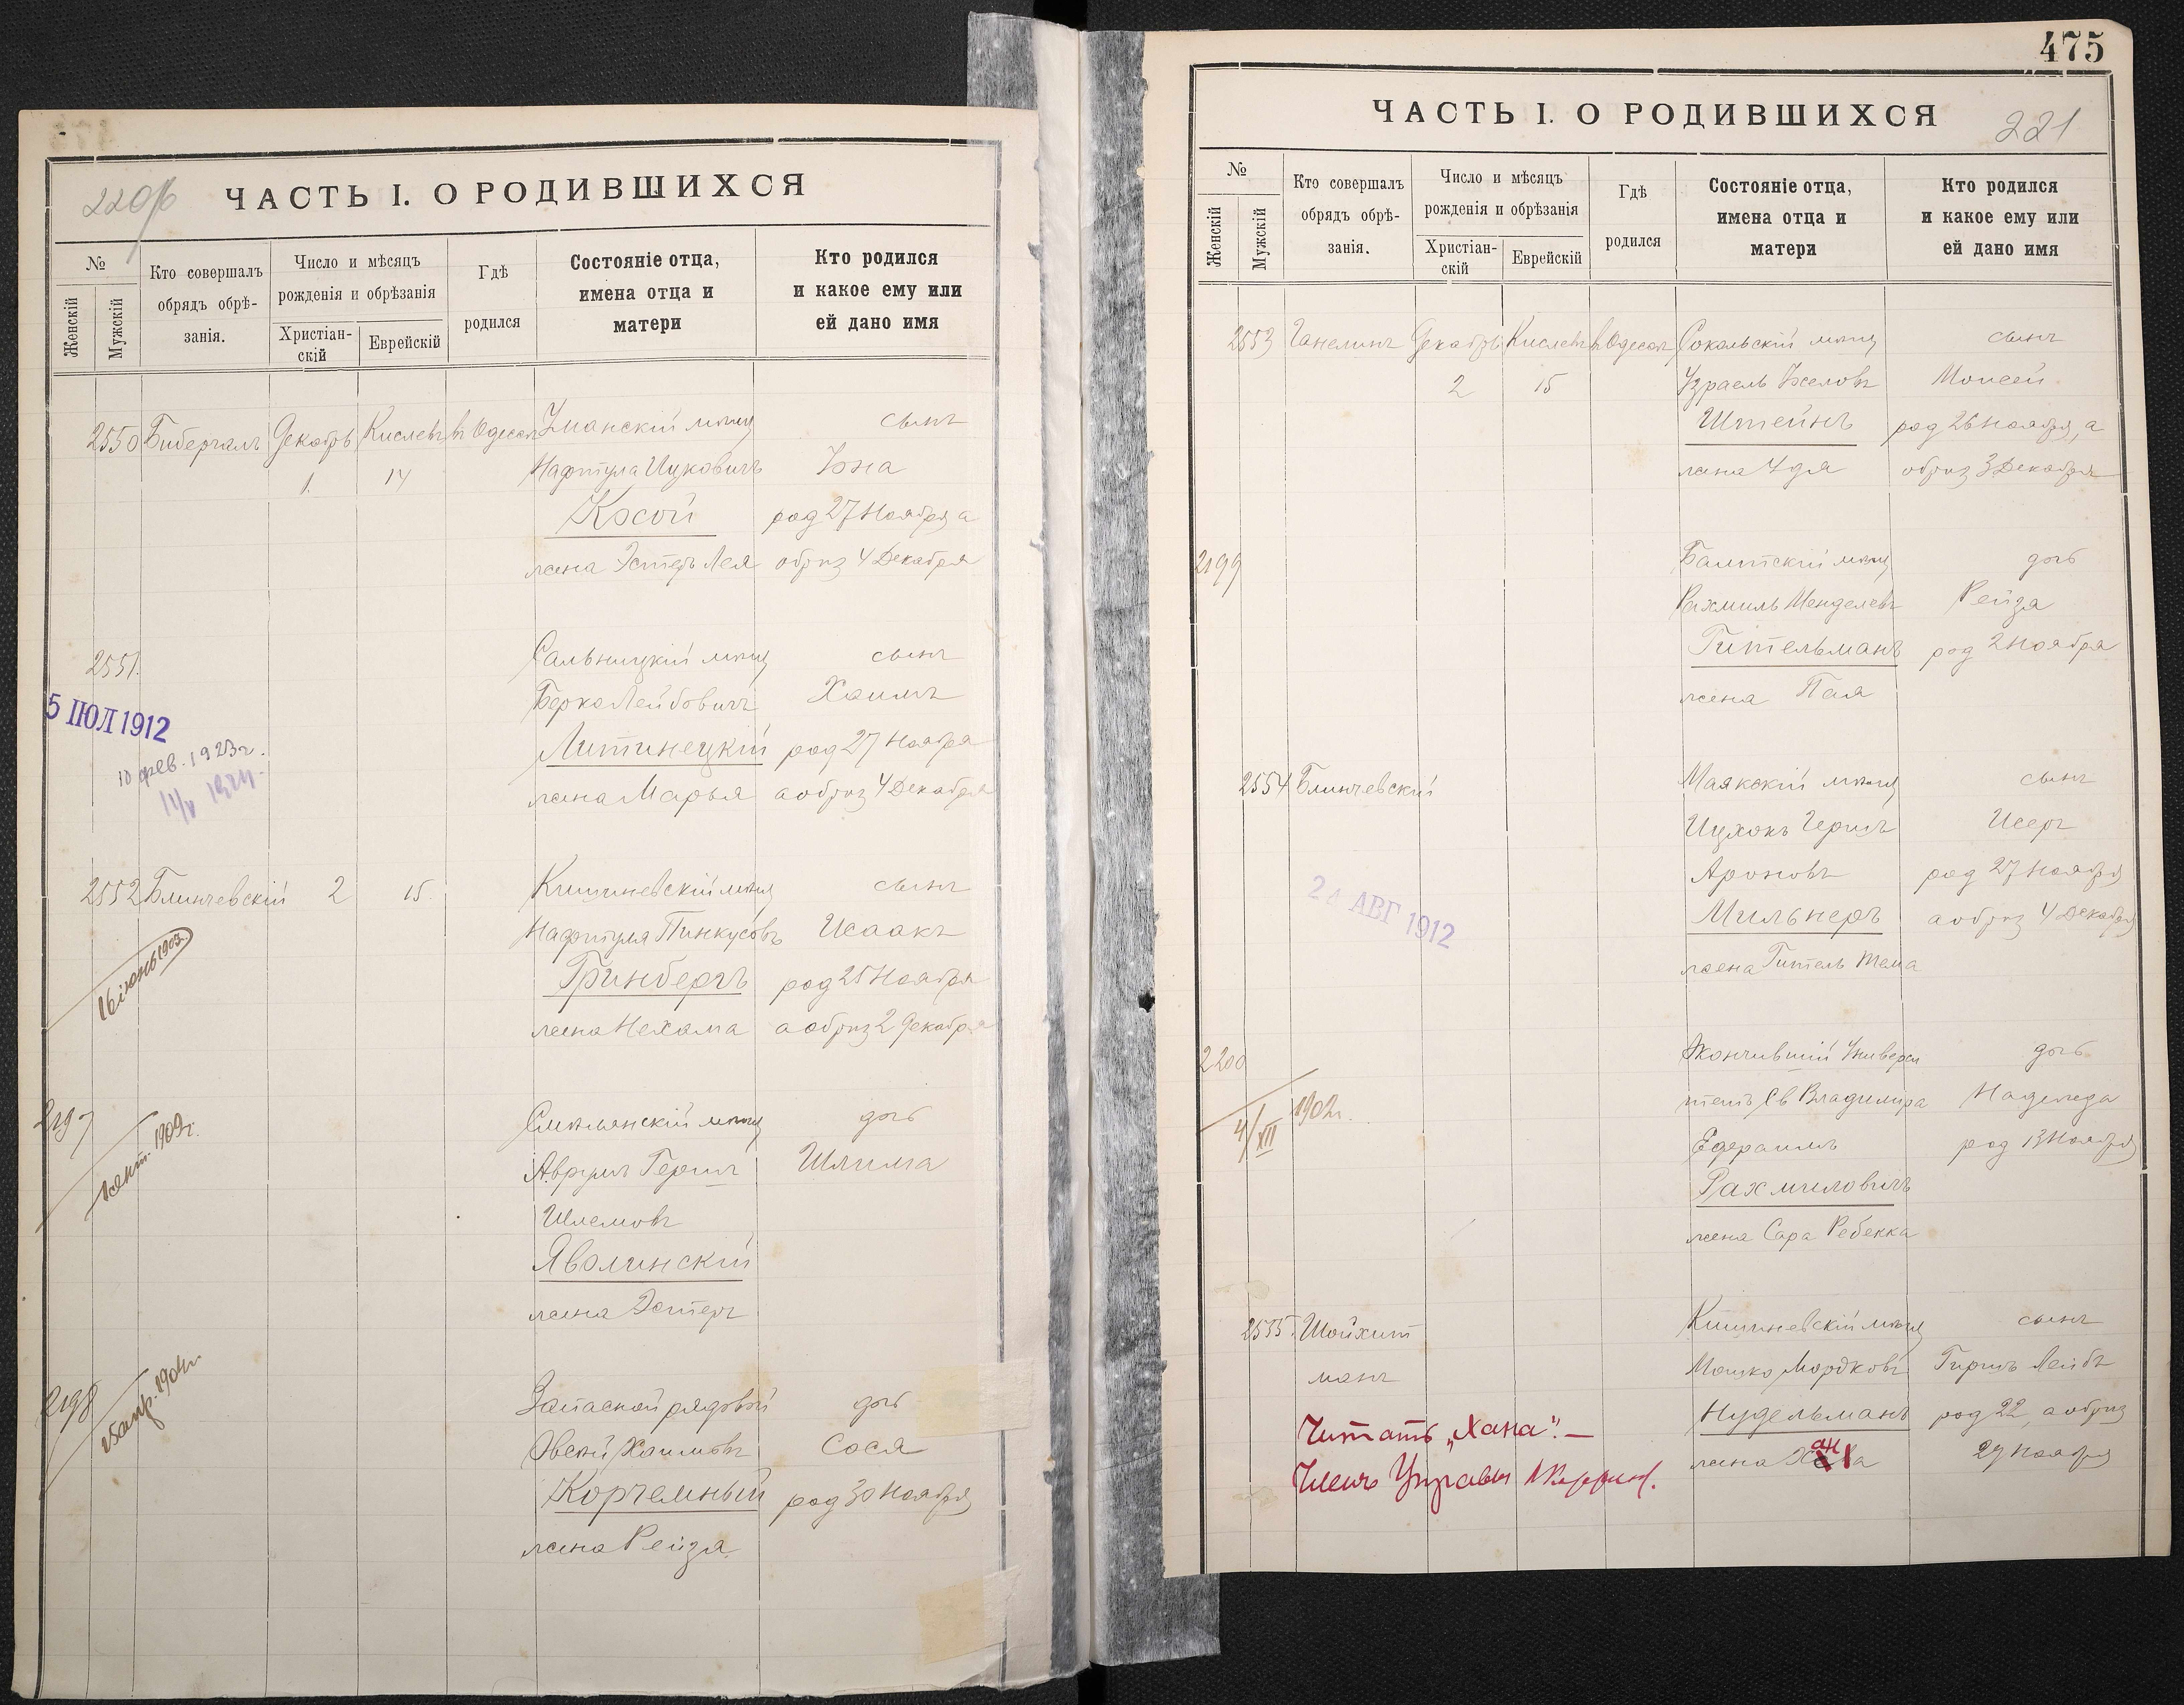 220/б
ЧАСТЬ I. О РОДИВШИХСЯ
№
Женскій
Мужскій
Кто совершалъ
обрядъ обрѣ-
занія.
Число и мѣсяцъ
рожденія и обрѣзанія
Христіан-
скій
Еврейскій
Гдѣ
родился
Состояніе отца,
имена отца и
матери
Кто родился
и какое ему или
ей дано имя
2550 Бибергалъ Декабрь Кислевъ въ Одессѣ Уманскій мѣщ сынъ
1. 14 Нафтула Ицковичъ Іона
Косой род 27 Ноября а
жена Эстеръ Лея обрѣз 4 Декабря
2551. Сальницкій мѣщ сынъ
Берко Лейбовичъ Хаимъ
5 ІЮЛ 1912
Литинецкій род 27 Ноября
10 фев. 1923г.
жена Марья а обрѣз 4 Декабря
14/V 1924.
2552 Блинчевскій 2 15. Кишиневскій мѣщ сынъ
Нафтула Пинкусовъ Исаакъ
16 іюнь 1903.
Гринбергъ род 25 Ноября
жена Нехама а обрѣз 2 Декабря
2197 Смѣлянскій мѣщ дочь
1909г.
Аврумъ Гершъ Шлима
Шлемовъ
Яволинскій
жена Эстеръ
2198 Запасной рядовой дочь
апр. 1904г.
Овсей Хаимовъ Сося
Корчемный род 30 Ноября
жена Рейза
475
221
ЧАСТЬ I. О РОДИВШИХСЯ
№
Женскій
Мужскій
Кто совершалъ
обрядъ обрѣ-
занія.
Число и мѣсяцъ
рожденія и обрѣзанія
Христіан-
скій
Еврейскій
Гдѣ
родился
Состояніе отца,
имена отца и
матери
Кто родился
и какое ему или
ей дано имя
2553 Ганелинъ Декабрь Кислевъ въ Одессѣ Сокальскій мѣщ сынъ
2 15 Израель Іоселовъ Моисей
Штейнъ род 26 Ноября, а
жена Удя обрѣз 3 Декабря
2199 Балтскій мѣщ дочь
Рахмиль Менделевъ Рейза
Гительманъ род 2 Ноября
жена Пая
2554 Блинчевскій Маякскій мѣщ сынъ
Ицхокъ Гершъ Исеръ
Ароновъ род 27 Ноября
24 АВГ 1912
Мильнеръ а обрѣз 4 Декабря
жена Гитель Тема
2200 Окончившій Универси дочь
4/XII 1902г.
тетъ Св Владимира Надежда
Ефраимъ род 13 Ноября
Рахмиловичъ
жена Сара Ребекка
2555. Шойхит Кишиневскій мѣщ сынъ
манъ Мошко Мордковъ Гиршъ Лейбъ
Нудельманъ род 22, а обрѣз
жена Хана 29 Ноября
Читать „Хана“. —
Членъ Управы